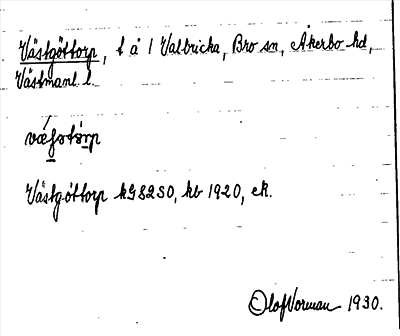 Västgöttorp, t å / Valbricka, Bro sn, Åkerbo hd,
Västmanl. l.
Västgöttorp kG82SO, kb 1920, ek.
Olof Norman 1930.